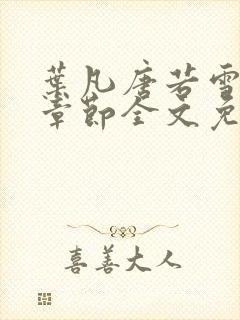 葉凡唐若雪
章節全文免
喜善大人